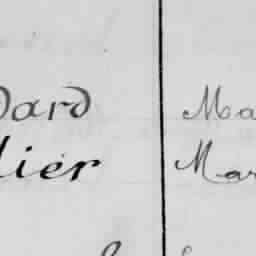 dard Ma
lier Mar